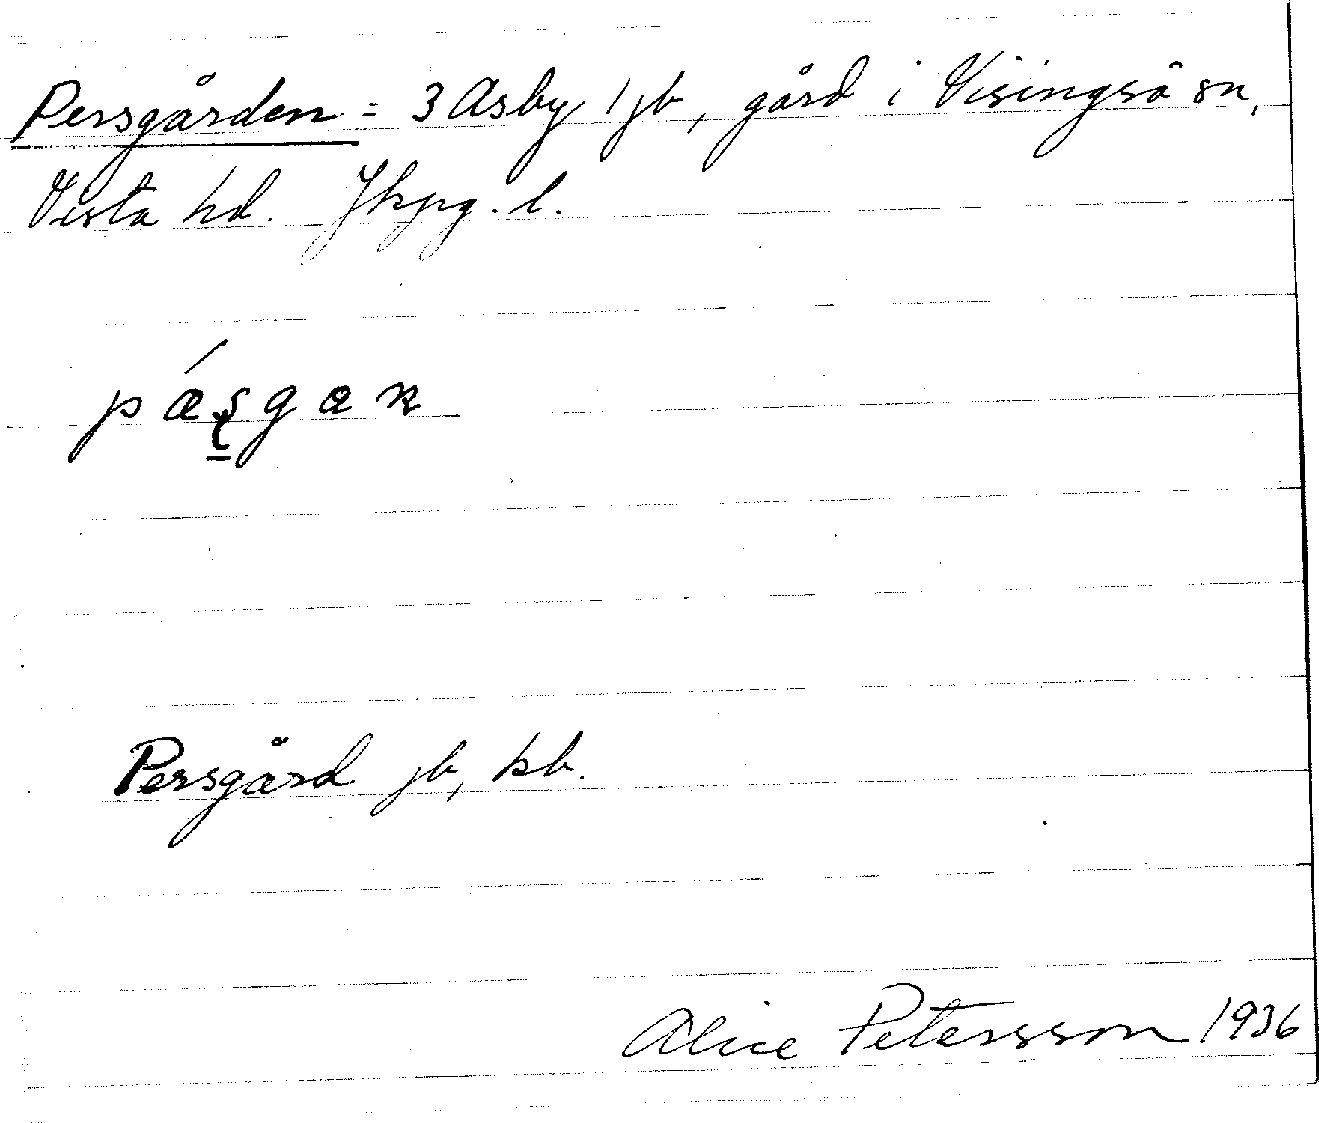 Persgården = 3 Åsby 1 jb, gård i Visingsö sn,
Vista hd. Jkpg. l.
Persgård jb, kb.
Alice Petersson 1936